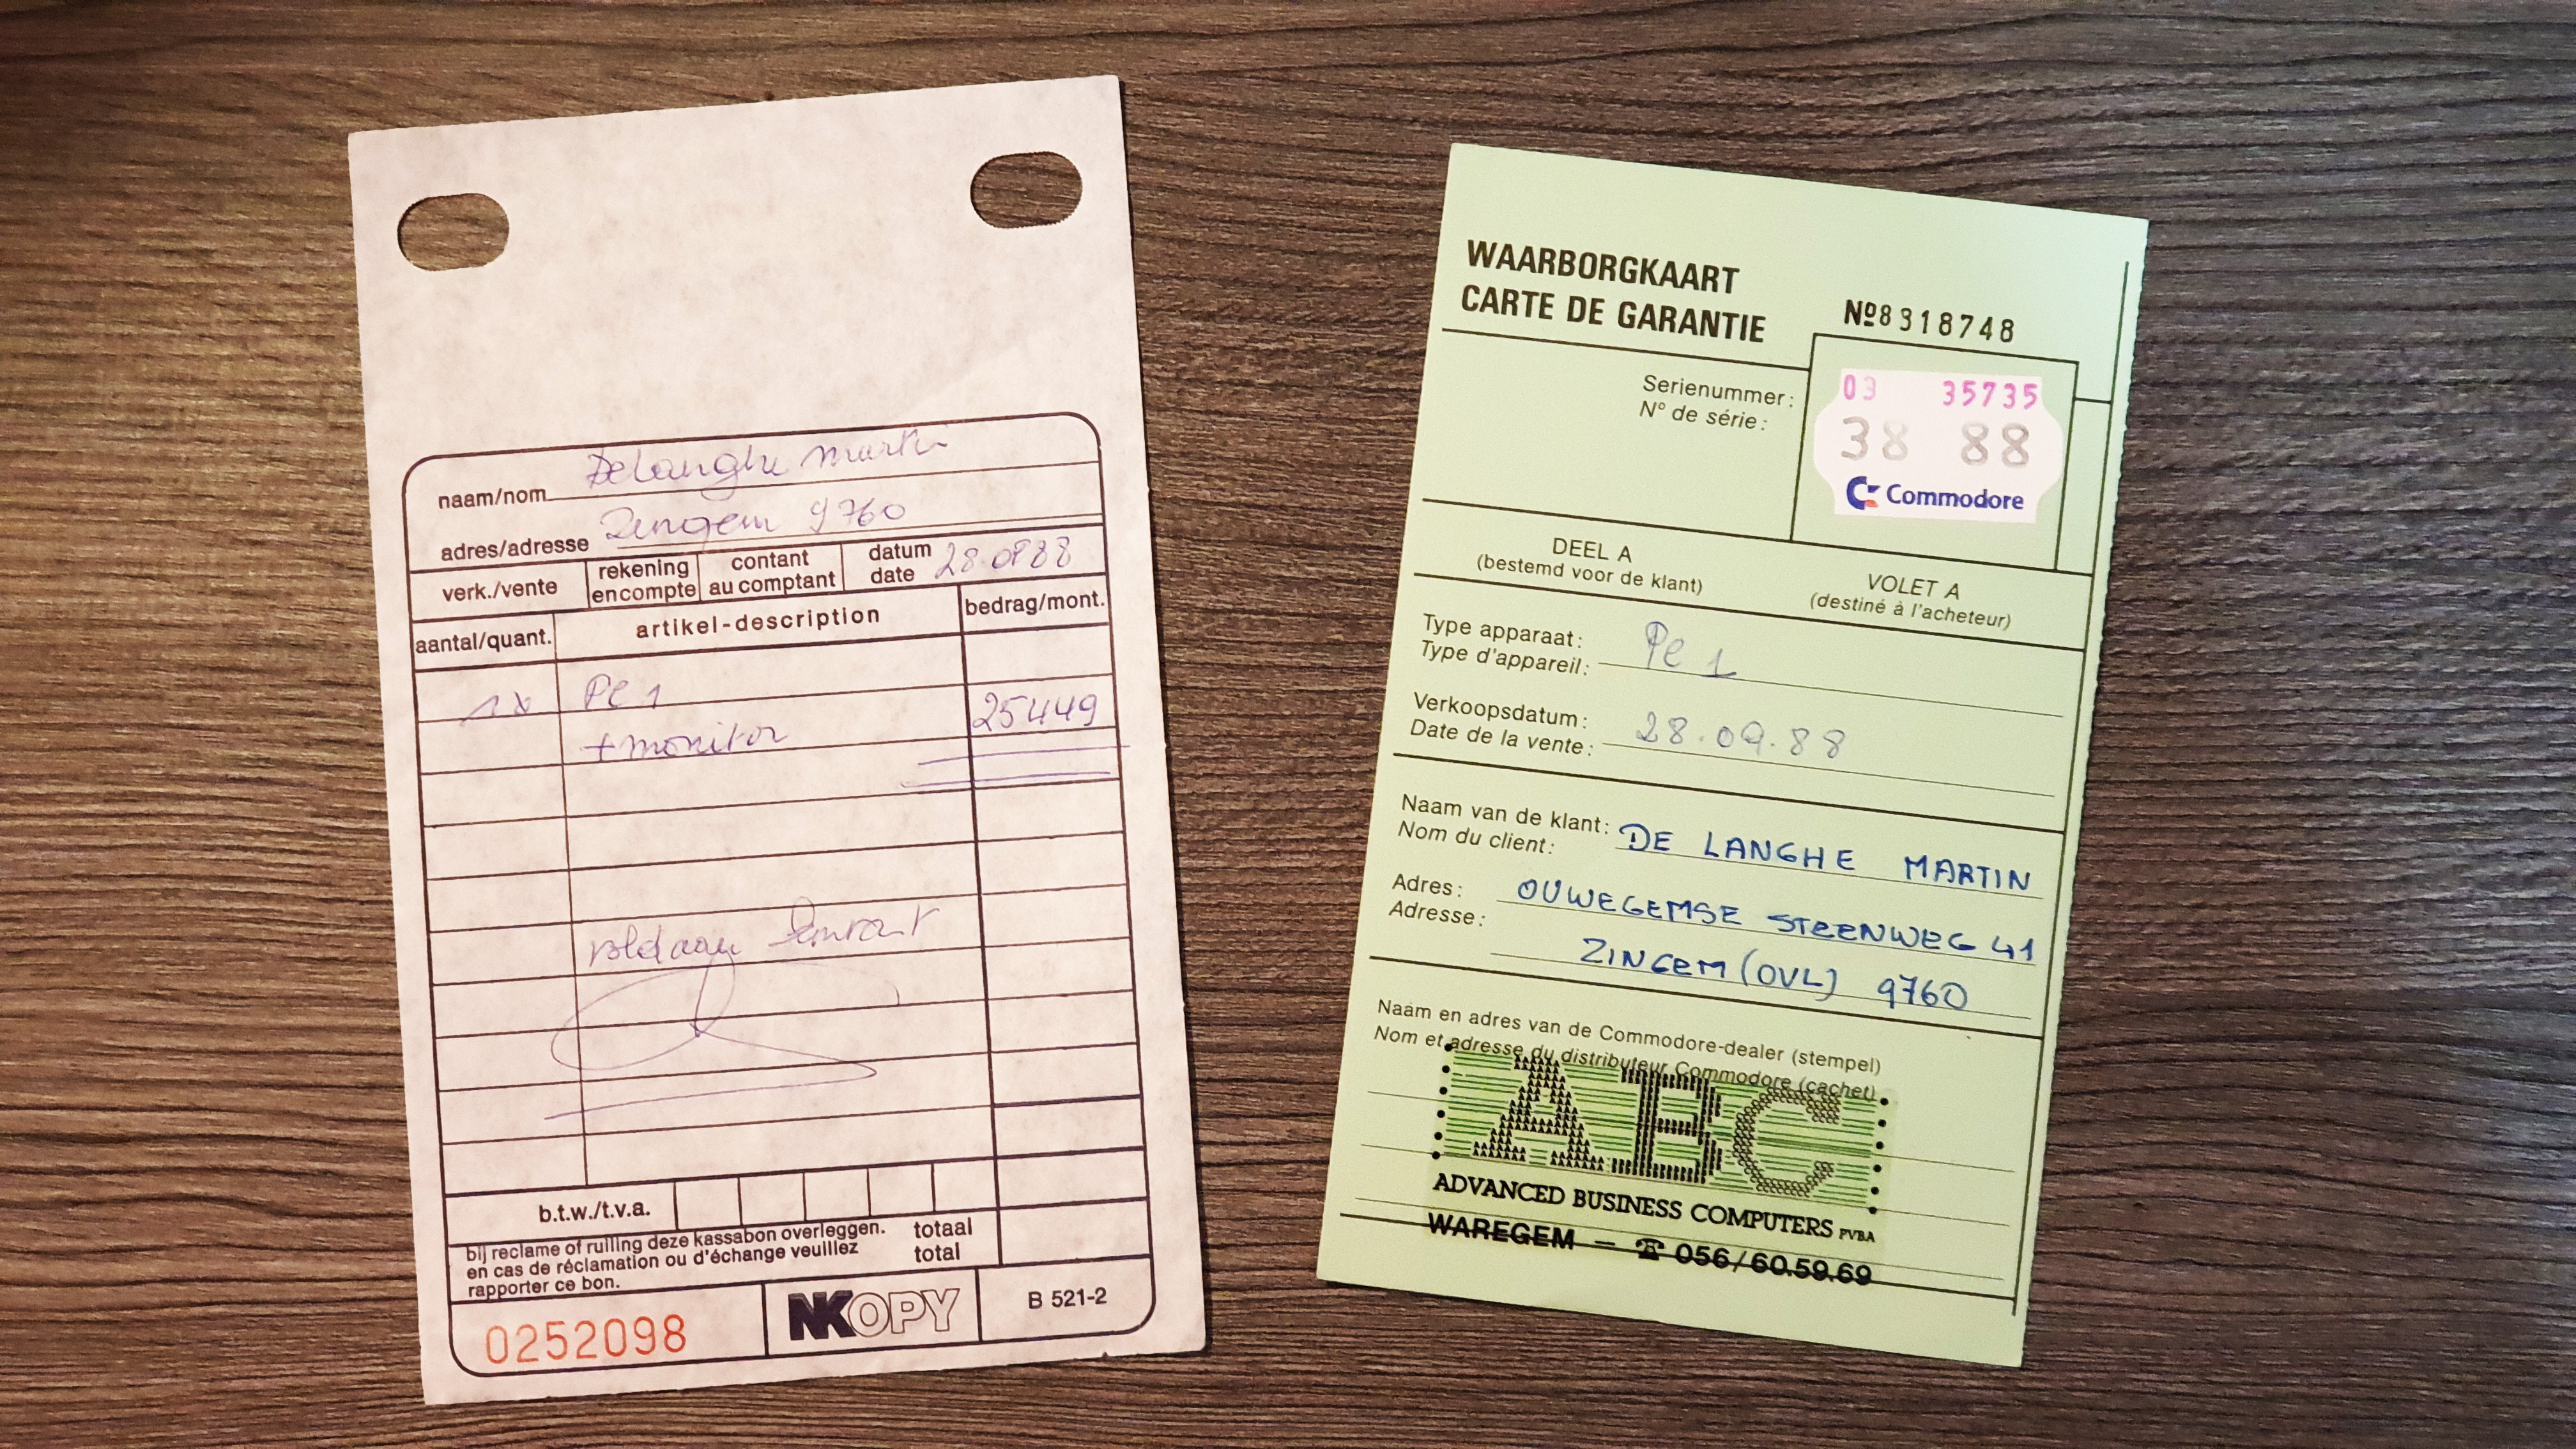 naam/nom Delanghe Martin
adres/adresse Zingem 9760
verk./vente
rekening
en compte
contant
au comptant
datum
date 28.09 88
aantal/quant. artikel-description bedrag/mont.
1x PC 1
+ monitor 25449
voldaan
b.t.w./t.v.a.
bij reclame of ruiling deze kassabon overleggen.
en cas de réclamation ou d'échange veuillez
rapporter ce bon.
totaal
total
0252098 NKOPY B 521-2
WAARBORGKAART
CARTE DE GARANTIE
Nº8318748
Serienummer:
N° de série:
03 35735
38 88
Commodore
DEEL A
(bestemd voor de klant)
VOLET A
(destiné à l'acheteur)
Type apparaat:
Type d'appareil: PC 1
Verkoopsdatum:
Date de la vente: 28.09.88
Naam van de klant:
Nom du client: DE LANGHE MARTIN
Adres: OUWEGEMSE STEENWEG 41
Adresse: ZINGEM (OVL) 9760
Naam en adres van de Commodore-dealer (stempel)
Nom et adresse du distributeur Commodore (cachet)
ABC
ADVANCED BUSINESS COMPUTERS PVBA
WAREGEM - ☎ 056/60.59.69